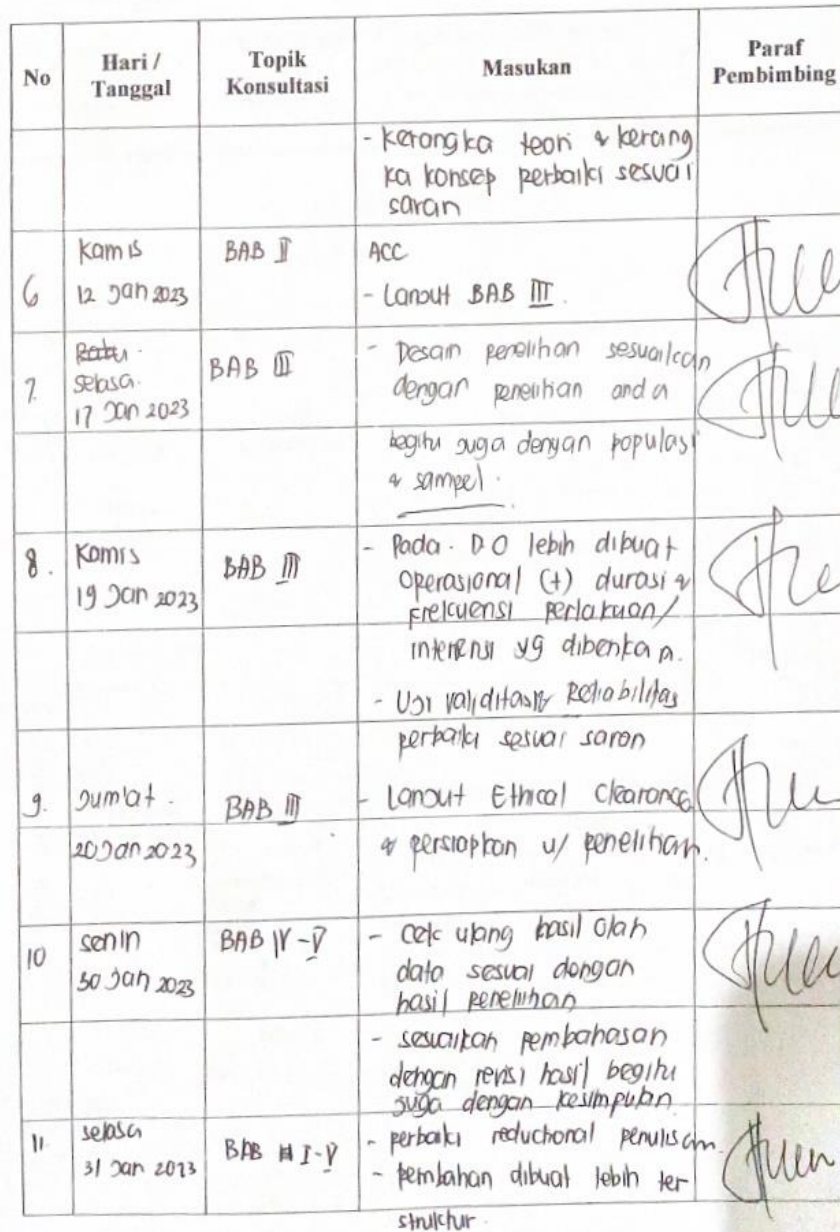 No Hari / Tanggal Topik Konsultasi Masukan Paraf Pembimbing
- Kerangka teori & kerang
ka konsep perbaiki sesuai
saran
6 Kamis BAB II ACC
12 Jan 2023 - Lanjut BAB III.
7. Rabu.
selasa. BAB III - Desain penelitian sesuaikan
17 Jan 2023 dengan penelitian anda
begitu juga dengan populasi
& sampel.
8. Kamis BAB III - Pada. DO lebih dibuat
19 Jan 2023 Operasional (+) durasi &
Frekuensi perlakuan/
intervensi yg diberikan.
- Uji validitas & Reliabilitas
perbaiki sesuai saran
9. Jum'at. BAB III - Lanjut Ethical Clearance
20 Jan 2023 & persiapkan u/ penelitian.
10 senin BAB IV - V - cek ulang hasil olah
30 Jan 2023 data sesuai dengan
hasil penelitian
- sesuaikan pembahasan
dengan revisi hasil begitu
juga dengan kesimpulan
11. selasa BAB I-V - perbaiki reductional penulisan.
31 Jan 2023 - pembahan dibuat lebih ter
struktur.